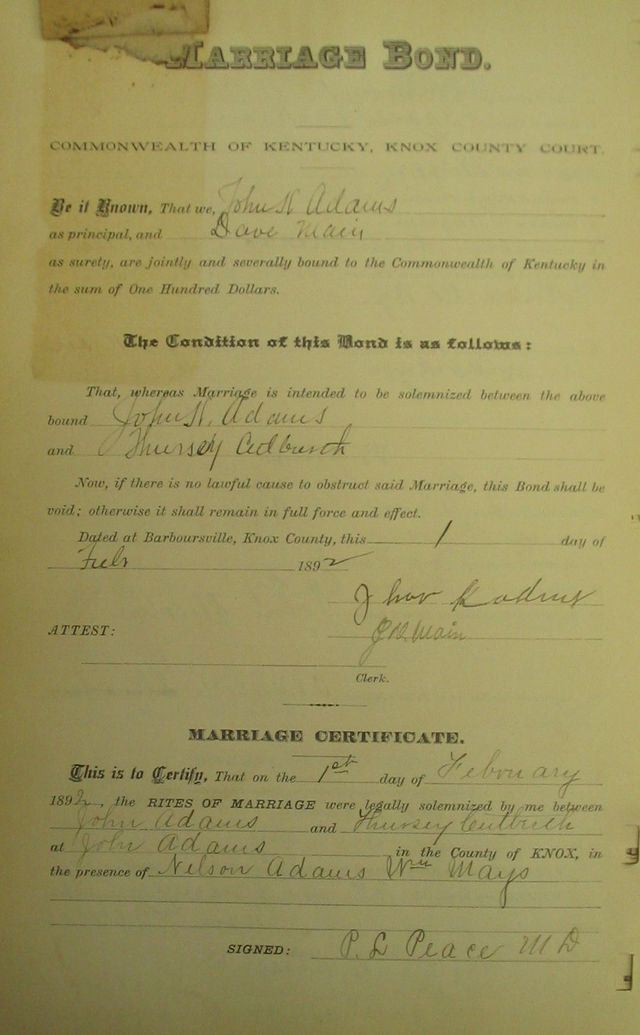 MARRIAGE BOND.
COMMONWEALTH OF KENTUCKY, KNOX COUNTY COURT.
Be it Known, That we, John H Adams
as principal, and Dave Main
as surety, are jointly and severally bound to the Commonwealth of Kentucky in
the sum of One Hundred Dollars.
The Condition of this Bond is as follows:
That, whereas Marriage is intended to be solemnized between the above
bound John H. Adams
and Thursey
Now, if there is no lawful cause to obstruct said Marriage, this Bond shall be
void; otherwise it shall remain in full force and effect.
Dated at Barboursville, Knox County, this 1 day of
Feb 1892
ATTEST: Main
Clerk.
MARRIAGE CERTIFICATE.
This is to Certify, That on the 1st day of February
1892, the RITES OF MARRIAGE were legally solemnized by me between
John Adams and Thursey
at John Adams in the County of KNOX, in
the presence of Nelson Adams Wm Mays
SIGNED: P. L Peace M D